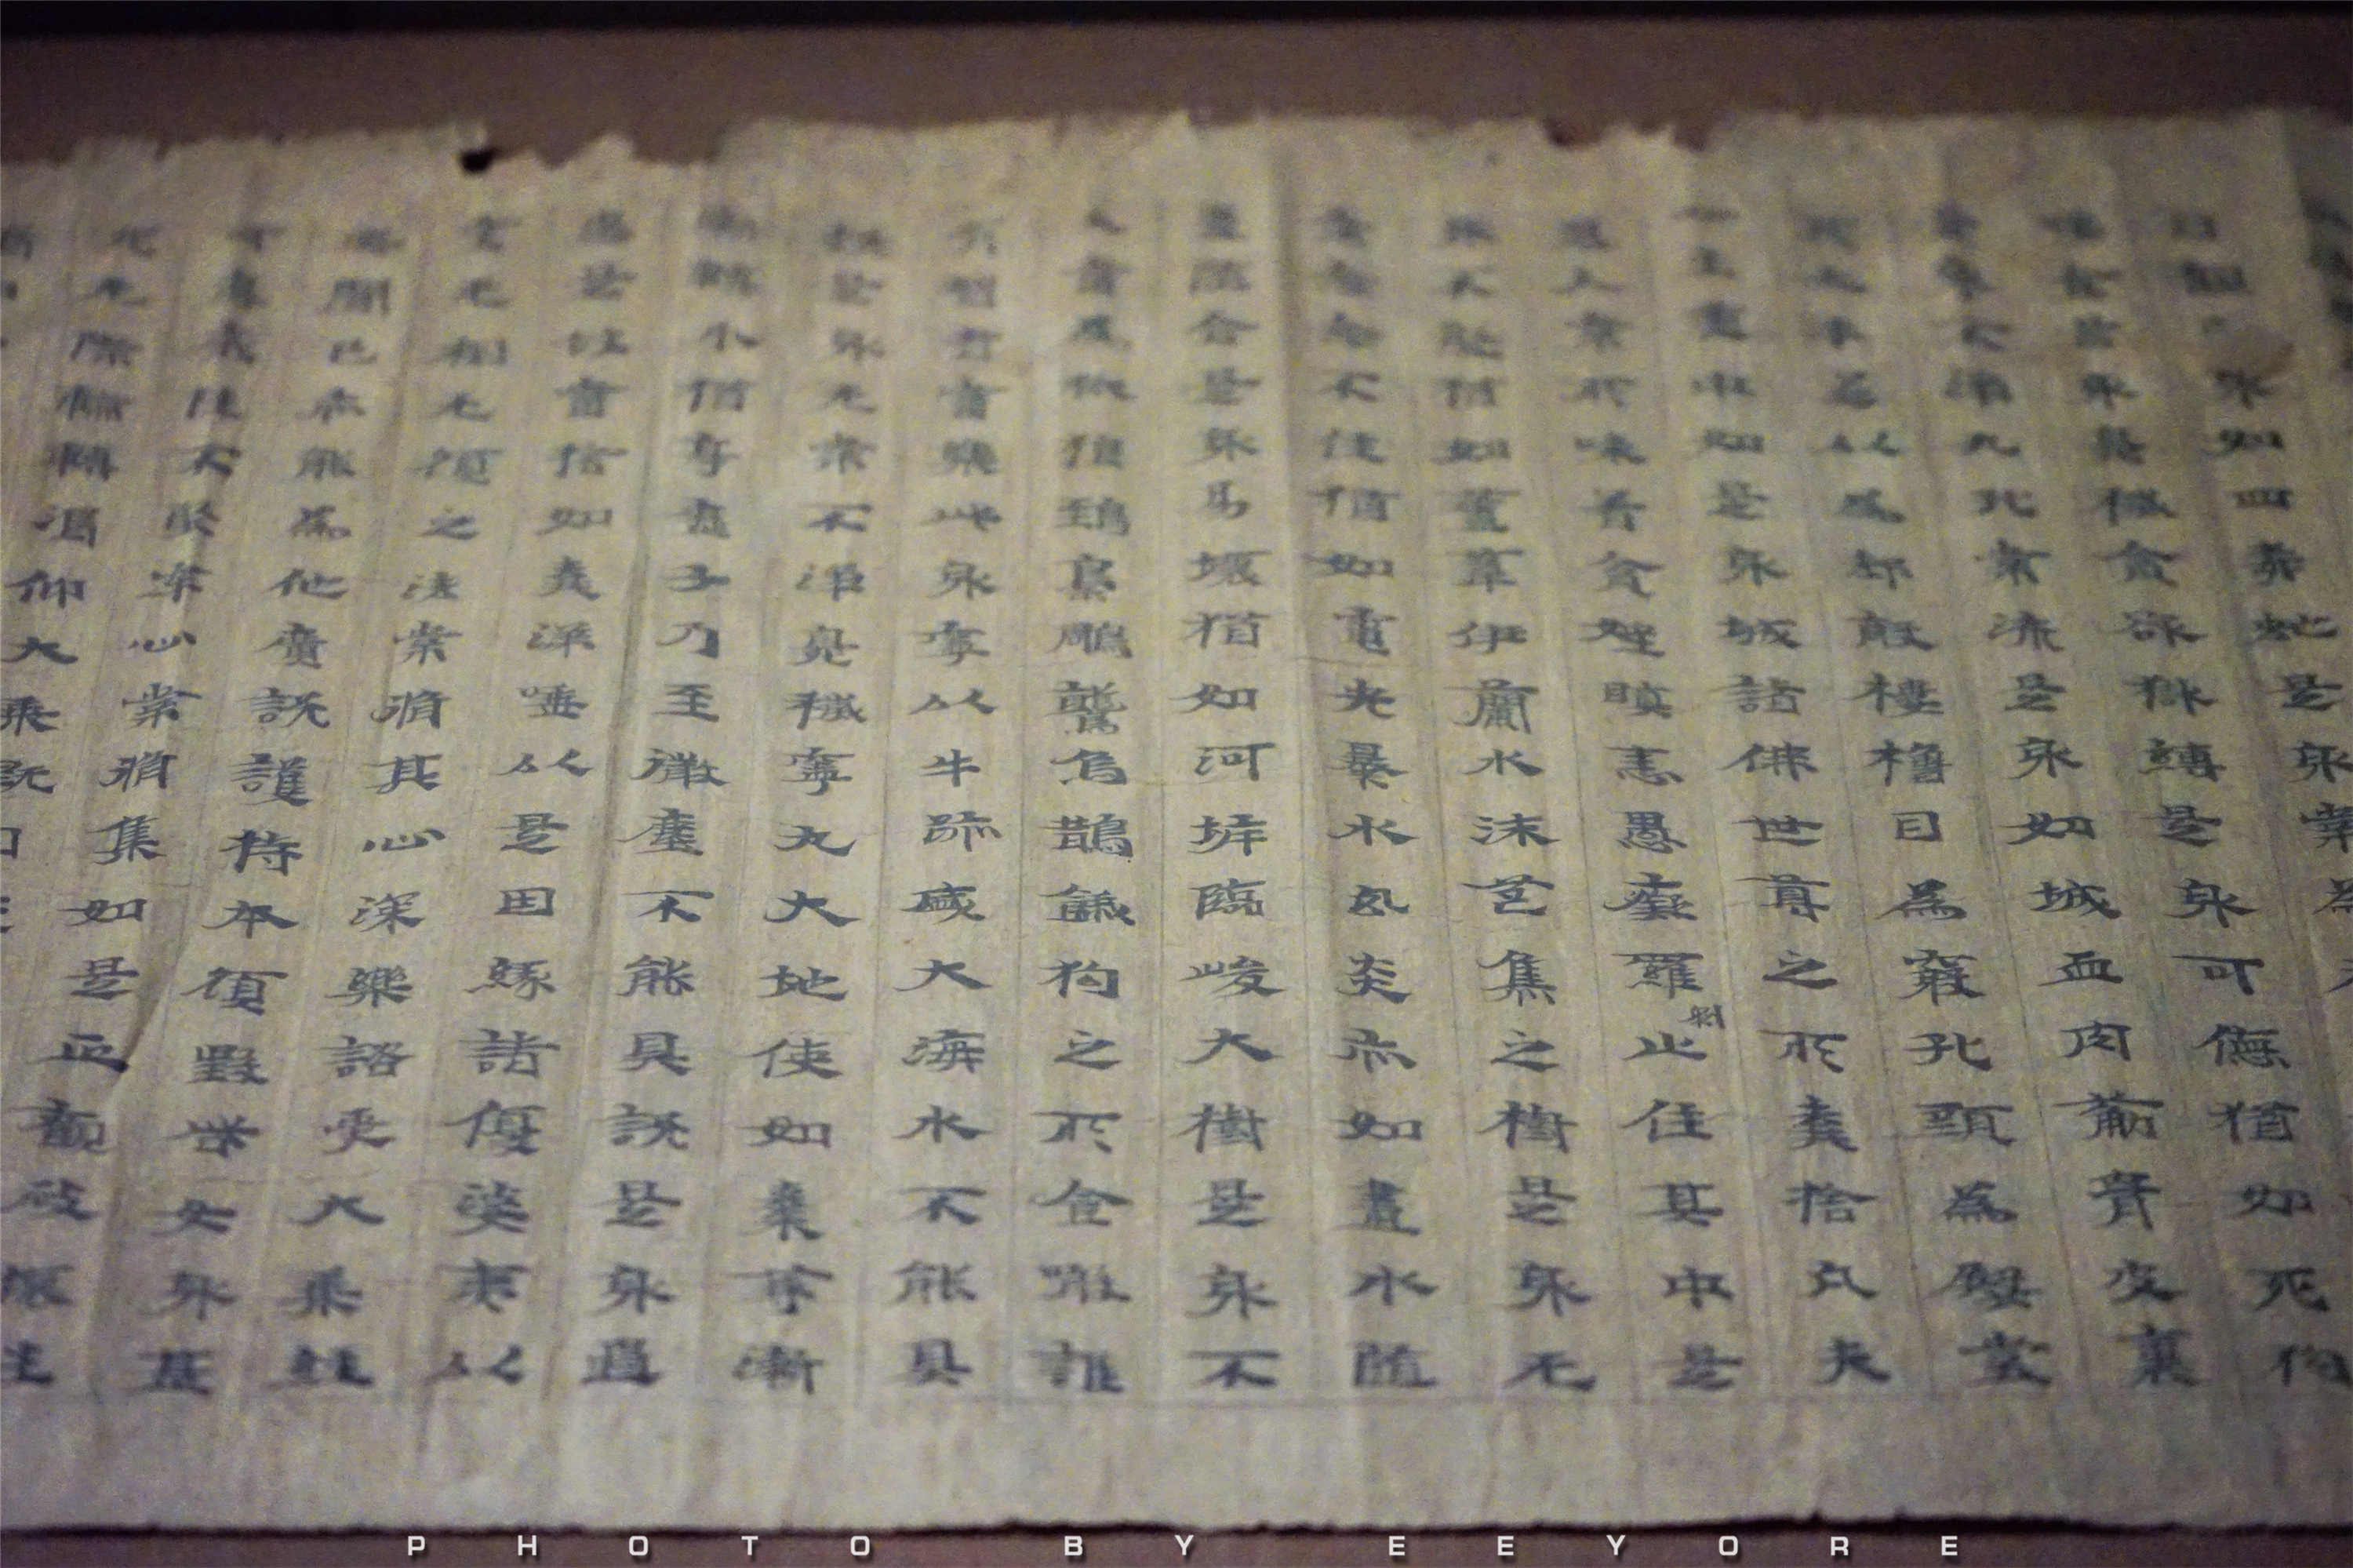 身如四毒蛇是身常為
食是身臭穢貪欲獄縛是身可惡猶如死狗
不淨九孔常流是身如城血肉筋骨皮裹
以為却敵樓櫓目為竅孔頭為殿堂
心王處中如是身城諸佛世尊之所棄捨凡夫
愚人常所味著貪婬瞋恚愚癡羅剎止住其中是
身不堅猶如蘆葦伊蘭水沫芭蕉之樹是身无
常念念不住猶如電光暴水幻炎亦如畫水隨
畫隨合是身易壞猶如河岸臨峻大樹是身不
久當為狐狼鵄梟鵰鷲烏鵲餓狗之所食噉誰
有智者當樂此身寧以牛跡盛大海水不能具
說是身无常不淨臭穢寧丸大地使如棗等漸
漸轉小猶亭子乃至微塵不能具說是身過
患是故當捨如棄涕唾以是因緣諸優婆夷以
空无相无願之法常脩其心深樂諮受大乘經
典聞已亦能為他演說護持本願毀呰女身甚
可患厭性不堅牢心常脩集如是正觀破壞生
死无際輪轉渴仰大乘既
PHOTO BY EEYORE